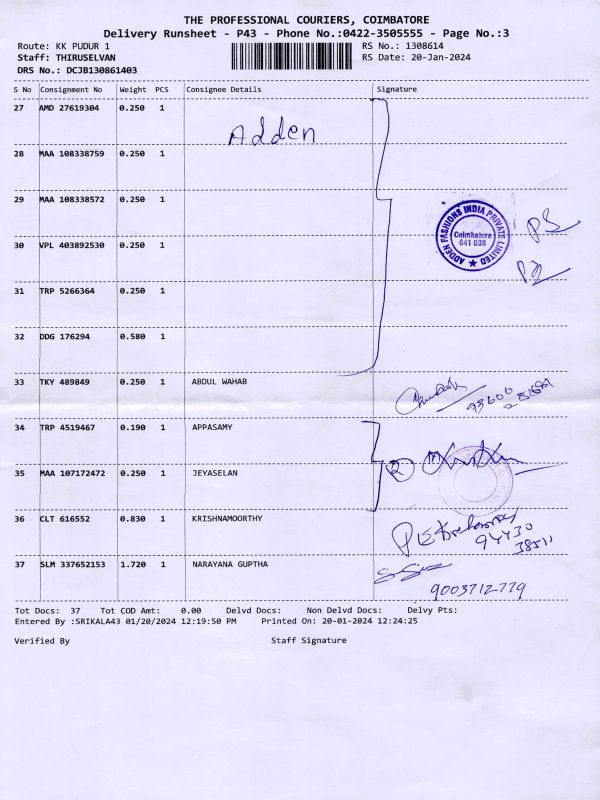 THE PROFESSIONAL COURIERS, COIMBATORE
Delivery Runsheet - P43 - Phone No.:0422-3505555 - Page No.:3
Route: KK PUDUR 1 RS No.: 1308614
Staff: THIRUSELVAN RS Date: 20-Jan-2024
DRS No.: DCJB130861403
S No Consignment No Weight PCS Consignee Details Signature
27 AMD 27619304 0.250 1
Adden
28 MAA 108338759 0.250 1
29 MAA 108338572 0.250 1
ADDEN FASHIONS INDIA PRIVATE LIMITED
Coimbatore
641 038
30 VPL 403892530 0.250 1
31 TRP 5266364 0.250 1
32 DDG 176294 0.580 1
33 TKY 489849 0.250 1 ABDUL WAHAB
34 TRP 4519467 0.190 1 APPASAMY
35 MAA 107172472 0.250 1 JEYASELAN
2
36 CLT 616552 0.830 1 KRISHNAMOORTHY
94430
37 SLM 337652153 1.720 1 NARAYANA GUPTHA
9003712779
Tot Docs: 37 Tot COD Amt: 0.00 Delvd Docs: Non Delvd Docs: Delvy Pts:
Entered By :SRIKALA43 01/20/2024 12:19:50 PM Printed On: 20-01-2024 12:24:25
Verified By Staff Signature